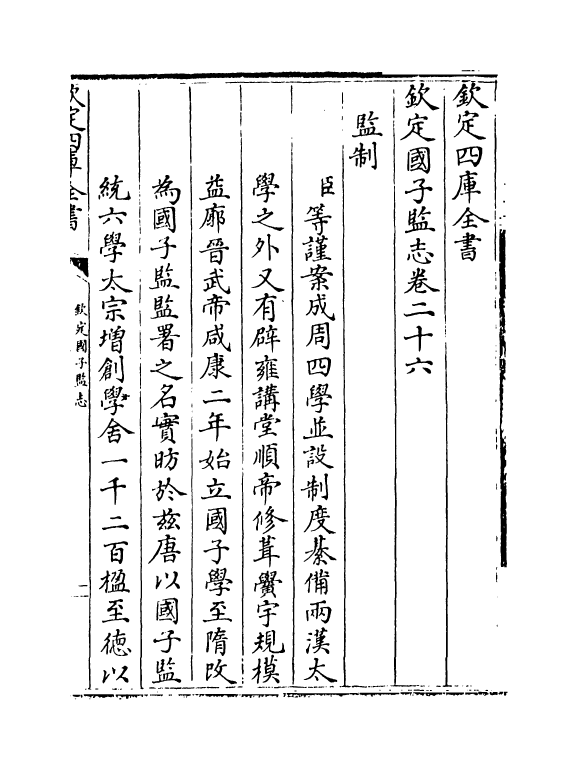 欽定四庫全書
欽定國子監志卷二十六
監制
臣等謹案成周四學並設制度綦備兩漢太
學之外又有辟雍講堂順帝修葺黌宇規模
益廓晉武帝咸康二年始立國子學至隋改
為國子監監署之名實昉於兹唐以國子監
統六學太宗增創學舍一千二百楹至徳以
欽定四庫全書
欽定國子監志
一